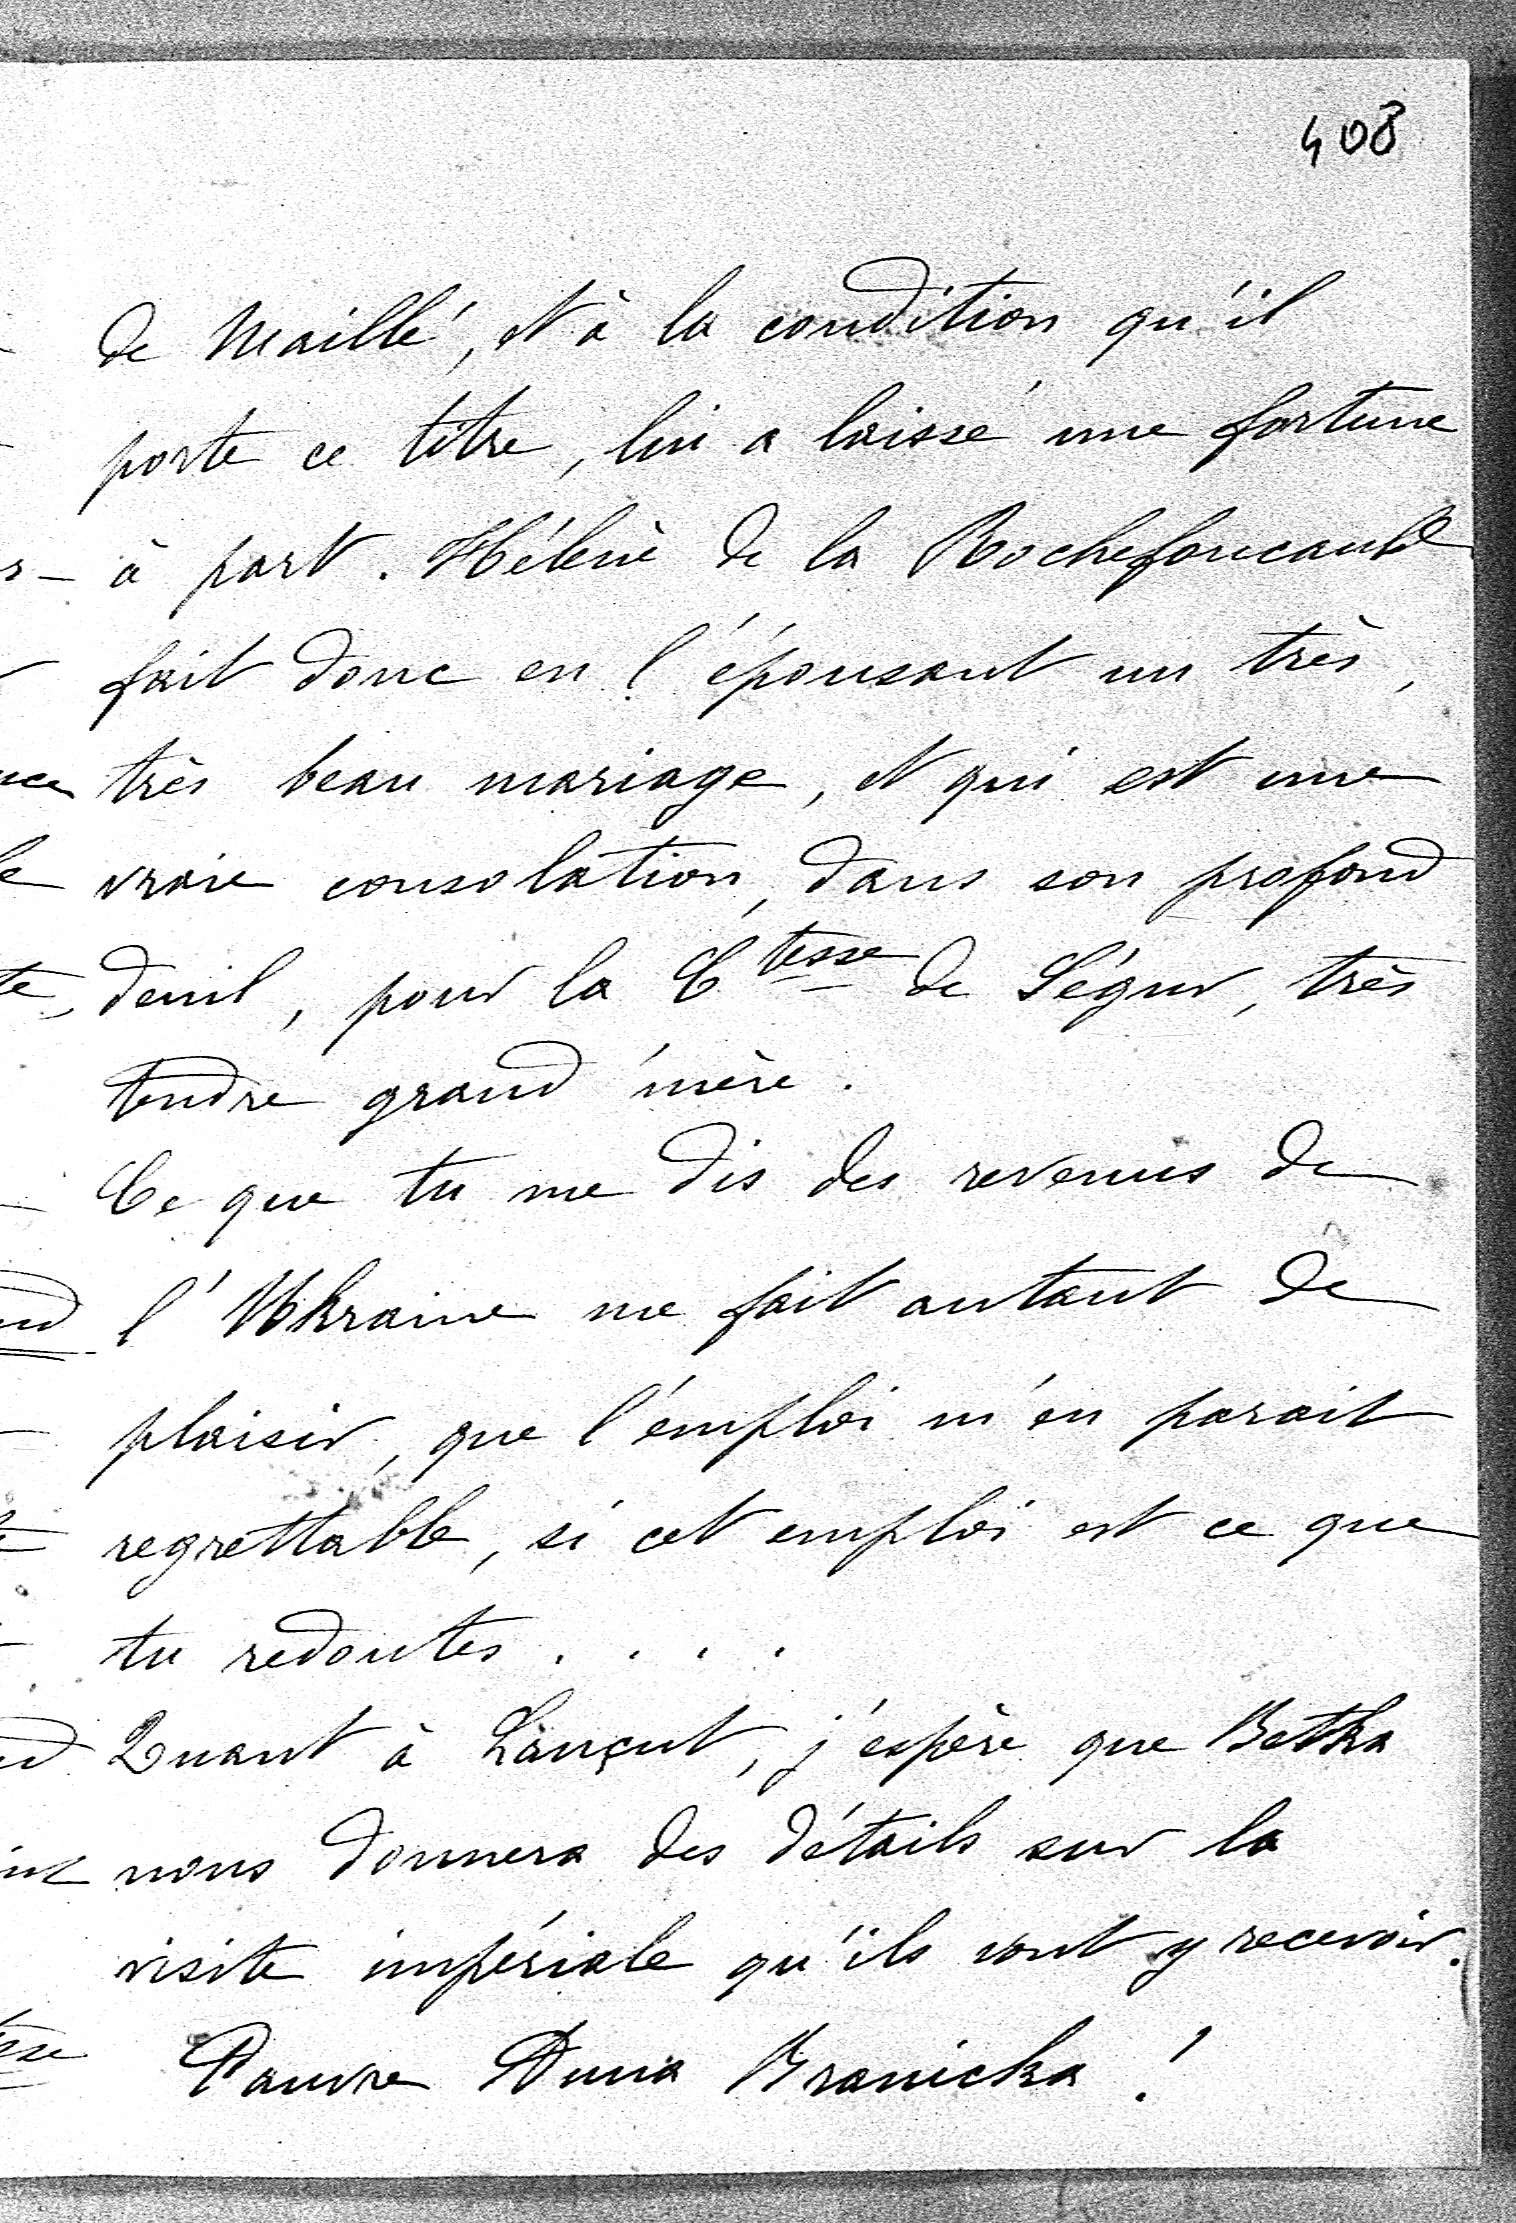 408
de Maillé, et à la condition qu'il
porte ce titre, lui a laissé une fortune
à part. Hélène de la Rochefoucauld
fait donc en l'épousant un très,
très beau mariage, et qui est une
vraie consolation, dans son profond
deuil, pour la Ctesse de Ségur, très
tendre grand'mère.
Ce que tu me dis des revenus de
l'Ukraine me fait autant de
plaisir, que l'emploi m'en parait
regrettable, si cet emploi est ce que
tu redoutes . . . .
Quant à Lançut, j'espère que Betka
nous donnera des détails sur la
visite impériale qu'ils vont y recevoir.
Pauvre Anna Branicka !